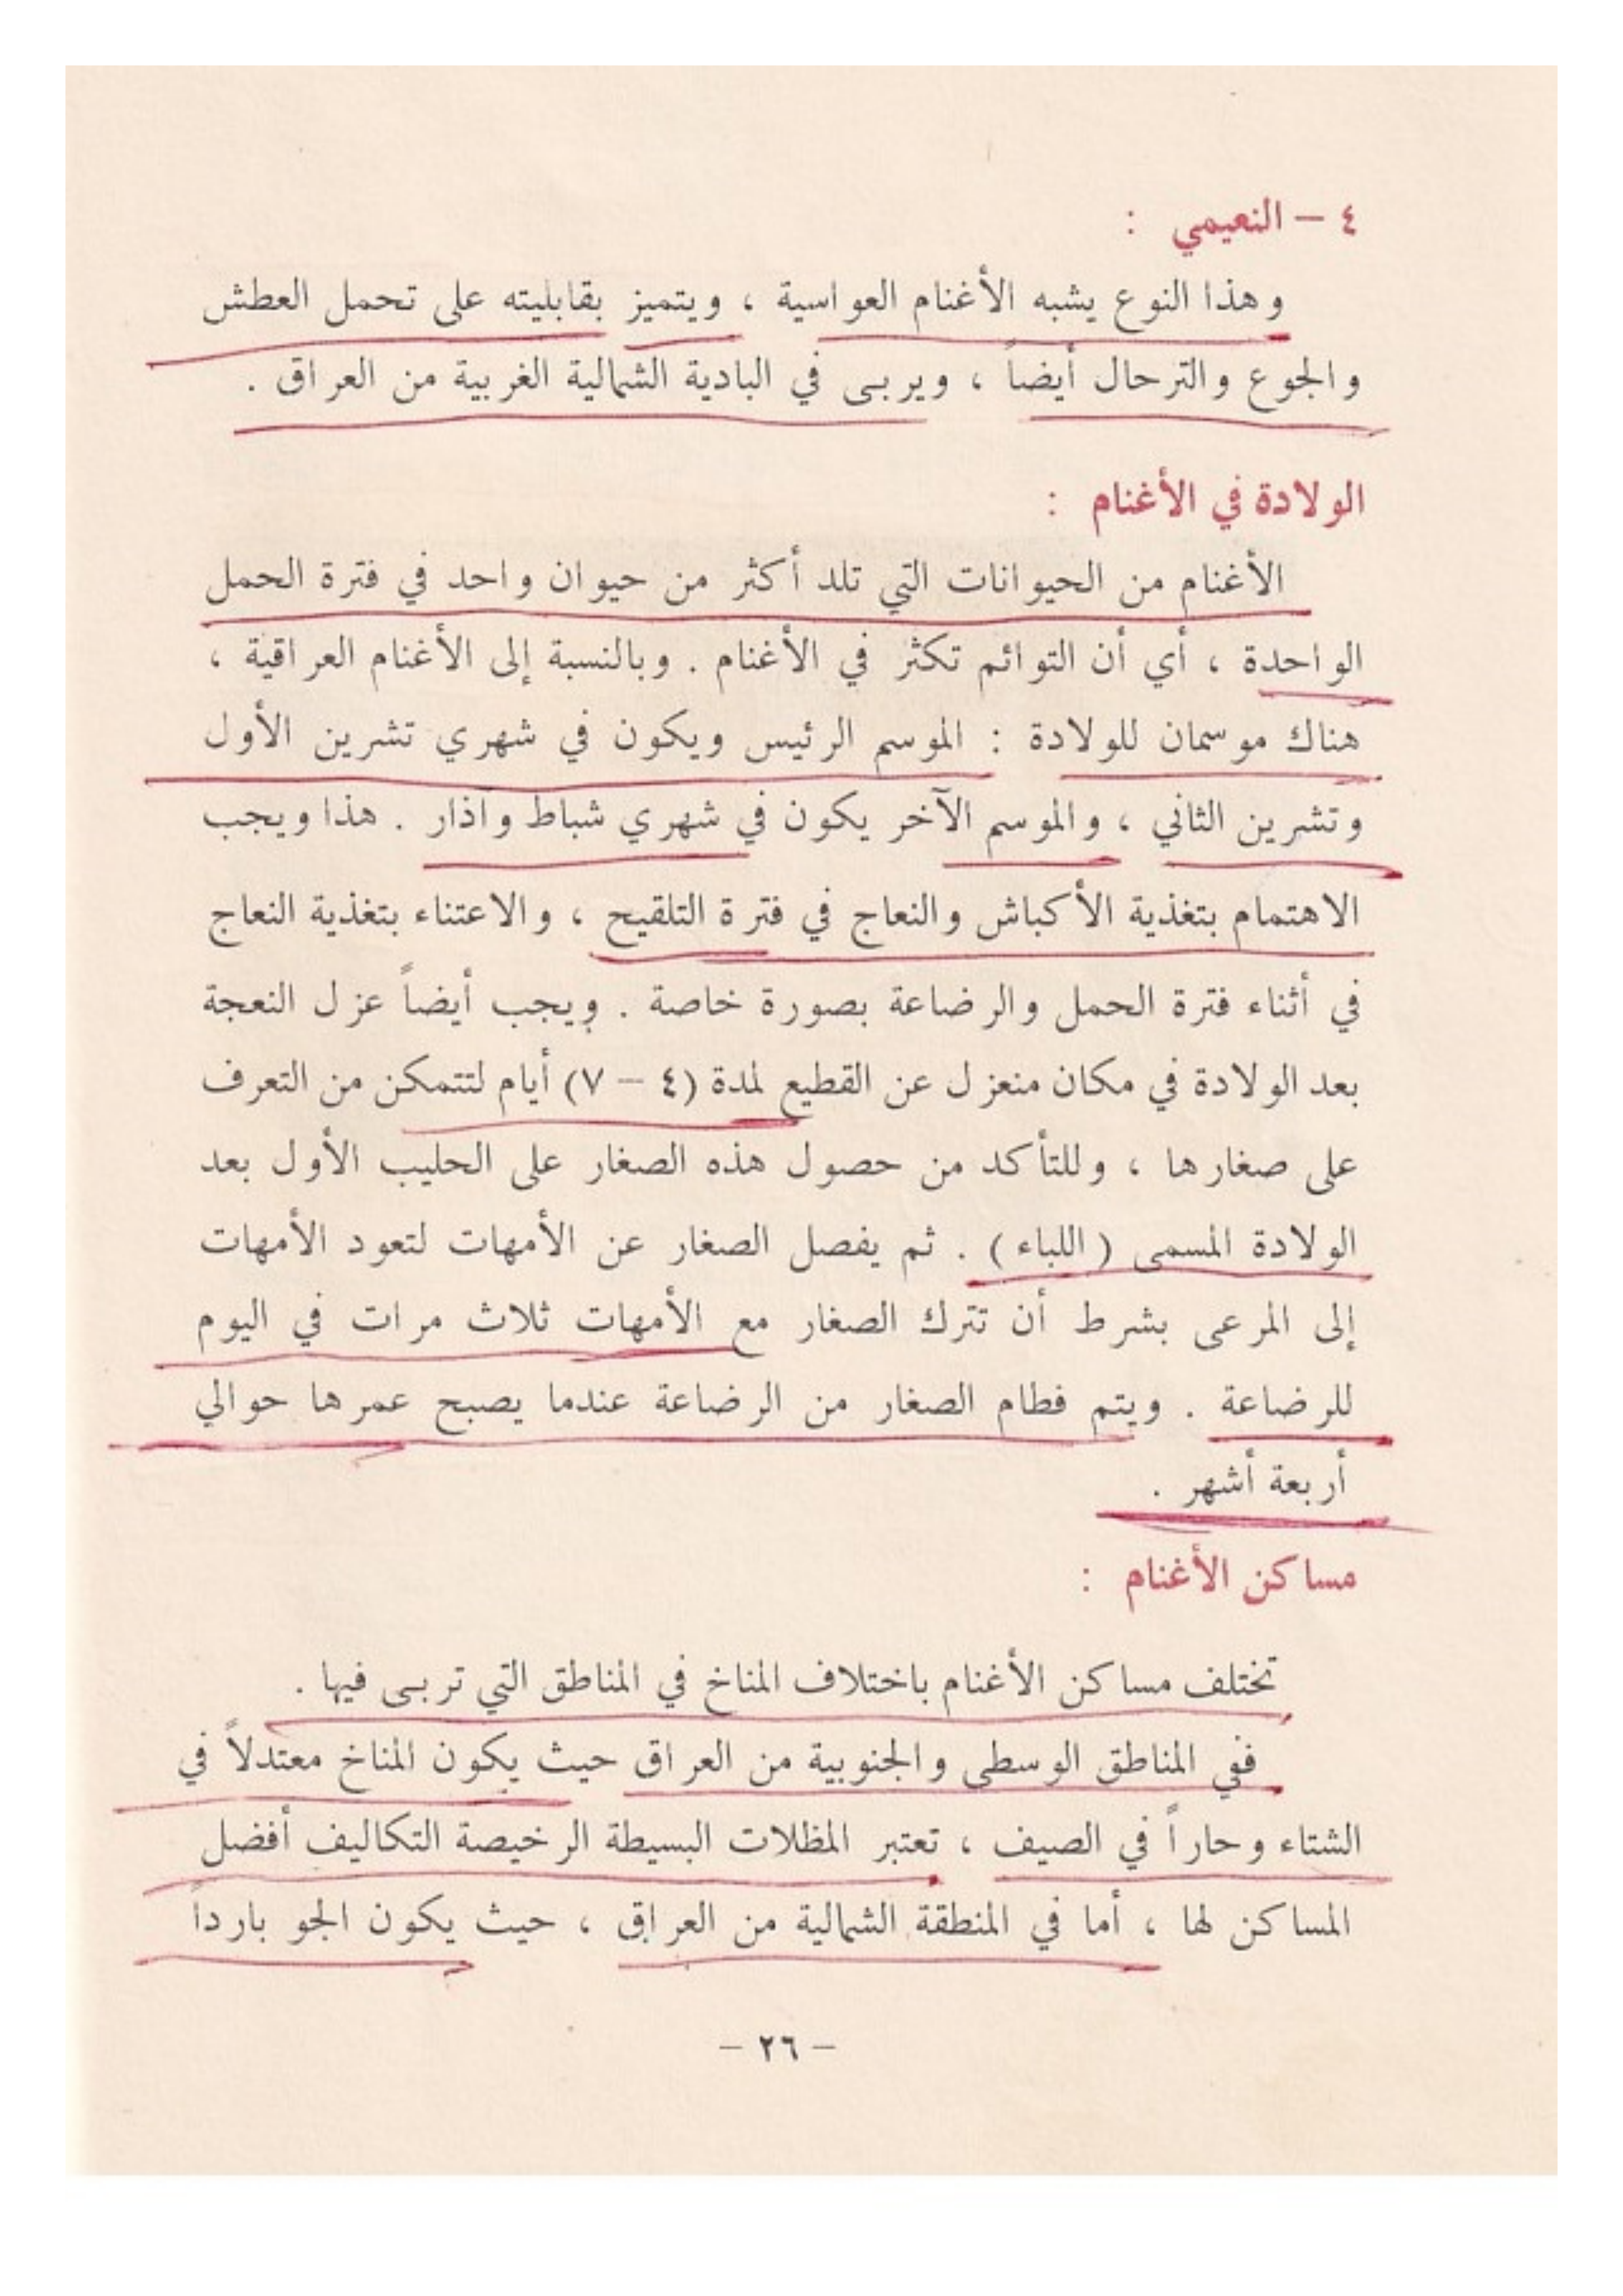 ٤ – النعيمي :
وهذا النوع يشبه الأغنام العواسية ، ويتميز بقابليته على تحمل العطش
والجوع والترحال أيضاً ، ويربى في البادية الشمالية الغربية من العراق .
الولادة في الأغنام :
الأغنام من الحيوانات التي تلد أكثر من حيوان واحد في فترة الحمل
الواحدة ، أي أن التوائم تكثر في الأغنام . وبالنسبة إلى الأغنام العراقية ،
هناك موسمان للولادة : الموسم الرئيس ويكون في شهري تشرين الأول
وتشرين الثاني ، والموسم الآخر يكون في شهري شباط وآذار . هذا ويجب
الاهتمام بتغذية الأكباش والنعاج في فترة التلقيح ، والاعتناء بتغذية النعاج
في أثناء فترة الحمل والرضاعة بصورة خاصة . ويجب أيضاً عزل النعجة
بعد الولادة في مكان منعزل عن القطيع لمدة (٤ – ٧) أيام لتتمكن من التعرف
على صغارها ، وللتأكد من حصول هذه الصغار على الحليب الأول بعد
الولادة المسمى ( اللباء ) . ثم يفصل الصغار عن الأمهات لتعود الأمهات
إلى المرعى بشرط أن تترك الصغار مع الأمهات ثلاث مرات في اليوم
للرضاعة . ويتم فطام الصغار من الرضاعة عندما يصبح عمرها حوالي
أربعة أشهر .
مساكن الأغنام :
تختلف مساكن الأغنام باختلاف المناخ في المناطق التي تربى فيها .
ففي المناطق الوسطى والجنوبية من العراق حيث يكون المناخ معتدلاً في
الشتاء وحاراً في الصيف ، تعتبر المظلات البسيطة الرخيصة التكاليف أفضل
المساكن لها ، أما في المنطقة الشمالية من العراق ، حيث يكون الجو بارداً
– ٢٦ –